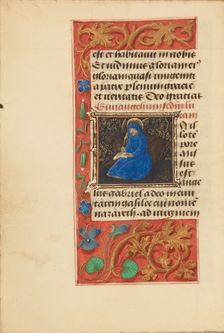 est et habitavit in nobis
Et vidimus gloriam eius
gloriam quasi unigeniti
a patre plenum gratie
et veritatis Deo gratias
lucam
In il
lo te
pore
mis
sus
est
ange
lus gabriel a deo in civi
tatem galilee cui nomen
nazareth. ad virginem